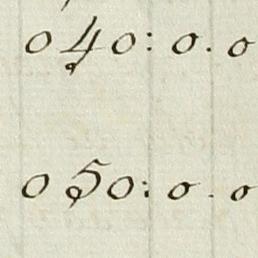 040: 0. 0
050: 0. 0